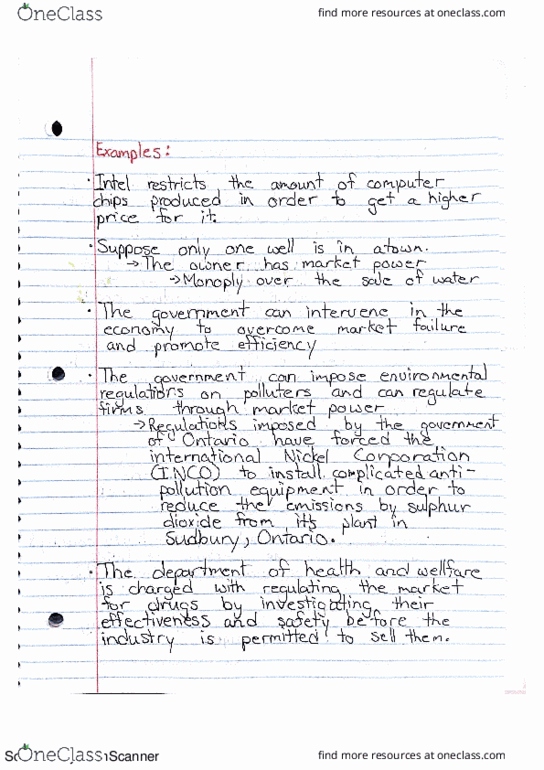 OneClass find more resources at oneclass.com
Examples:
· Intel restricts the amount of computer
chips produced in order to get a higher
price for it.
· Suppose only one well is in a town.
→ The owner has market power
→ Monoply over the sale of water
· The government can intervene in the
economy to overcome market failure
and promote efficiency
· The government can impose environmental
regulations on polluters and can regulate
firms through market power
→ Regulations imposed by the government
of Ontario have forced the
international Nickel Corporation
(INCO) to install complicated anti-
pollution equipment in order to
reduce the emissions by sulphur
dioxide from it's plant in
Sudbury, Ontario.
· The department of health and wellfare
is charged with regulating the market
for drugs by investigating their
effectiveness and safety before the
industry is permitted to sell them.
OneClass Scanner find more resources at oneclass.com